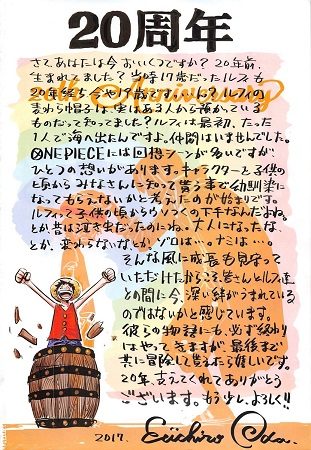 20周年
さて、あなたは今 おいくつですか? 20年前、
生まれてました? 当時17歳だったルフィも
20年経ち 今や19歳です…ん? ルフィの
麦わら帽子は、実はある人から預かっている
ものだって知ってました? ルフィは最初、たった
1人で海へ出たんですよ。仲間はいませんでした。
ONE PIECEには回想シーンが多いですが、
ひとつの想いがあります。キャラクターと子供の
頃からみなさんに知って貰う事で幼馴染に
なってもらえないかと考えたのが始まりです。
ルフィって子供の頃からウソつくの下手なんだよね。
とか昔は泣き虫だったのにね、大人になったな、
とか、変わらないなとか、ゾロは…。ナミは…。
そんな風に成長も見守って
いただけたからこそ、皆さんとルフィ達
との間に今、深い絆がうまれている
のではないかと感じています。
彼らの物語にも、必ず終わり
はやってきますが、最後まで
共に冒険して貰えたら嬉しいです。
20年、支えてくれてありがとう
ございます。もう少し、よろしく!!
2017. Eiichiro Oda.